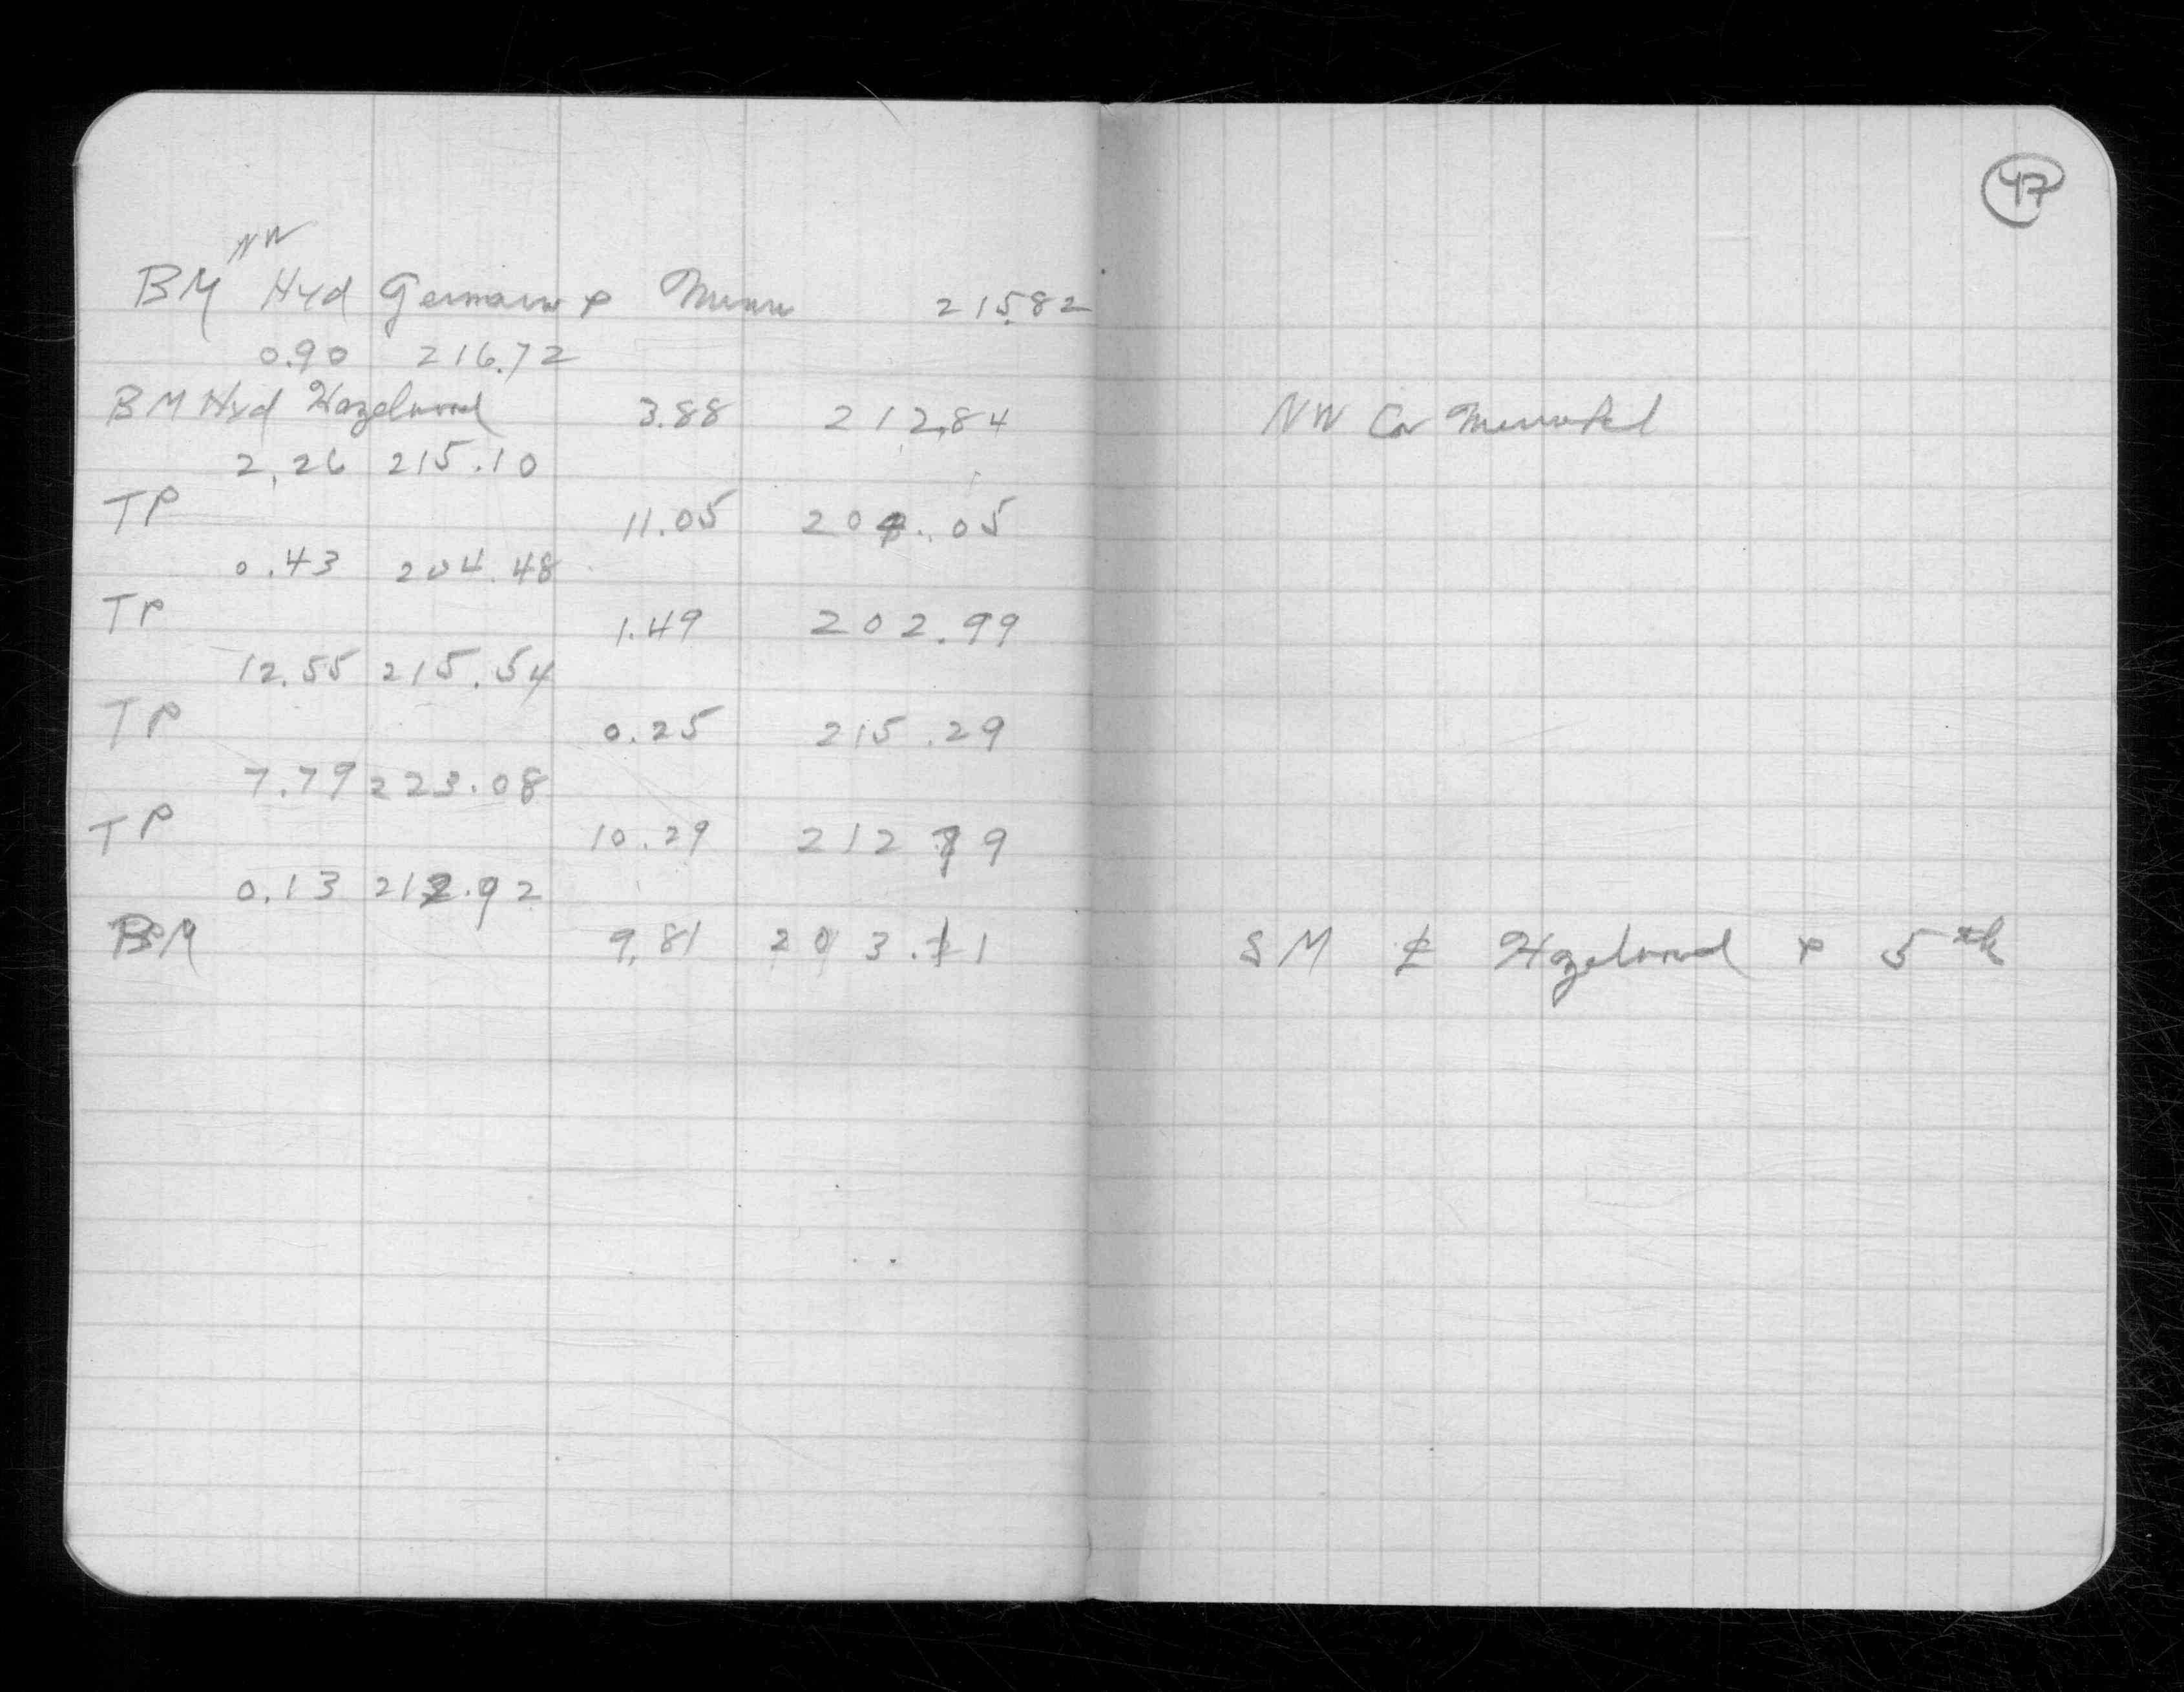 47
NW
BM Hyd Germain & Minn 215.82
0.90 216.72
BM Hyd Hazelwood 3.88 212.84 NW Cor
2.26 215.10
TP 11.05 204.05
0.43 204.48
TP 1.49 202.99
12.55 215.54
TP 0.25 215.29
7.79 223.08
TP 10.29 212 79
0.13 212.92
BM 9.81 203.11 SM ℄ Hazelwood & 5th